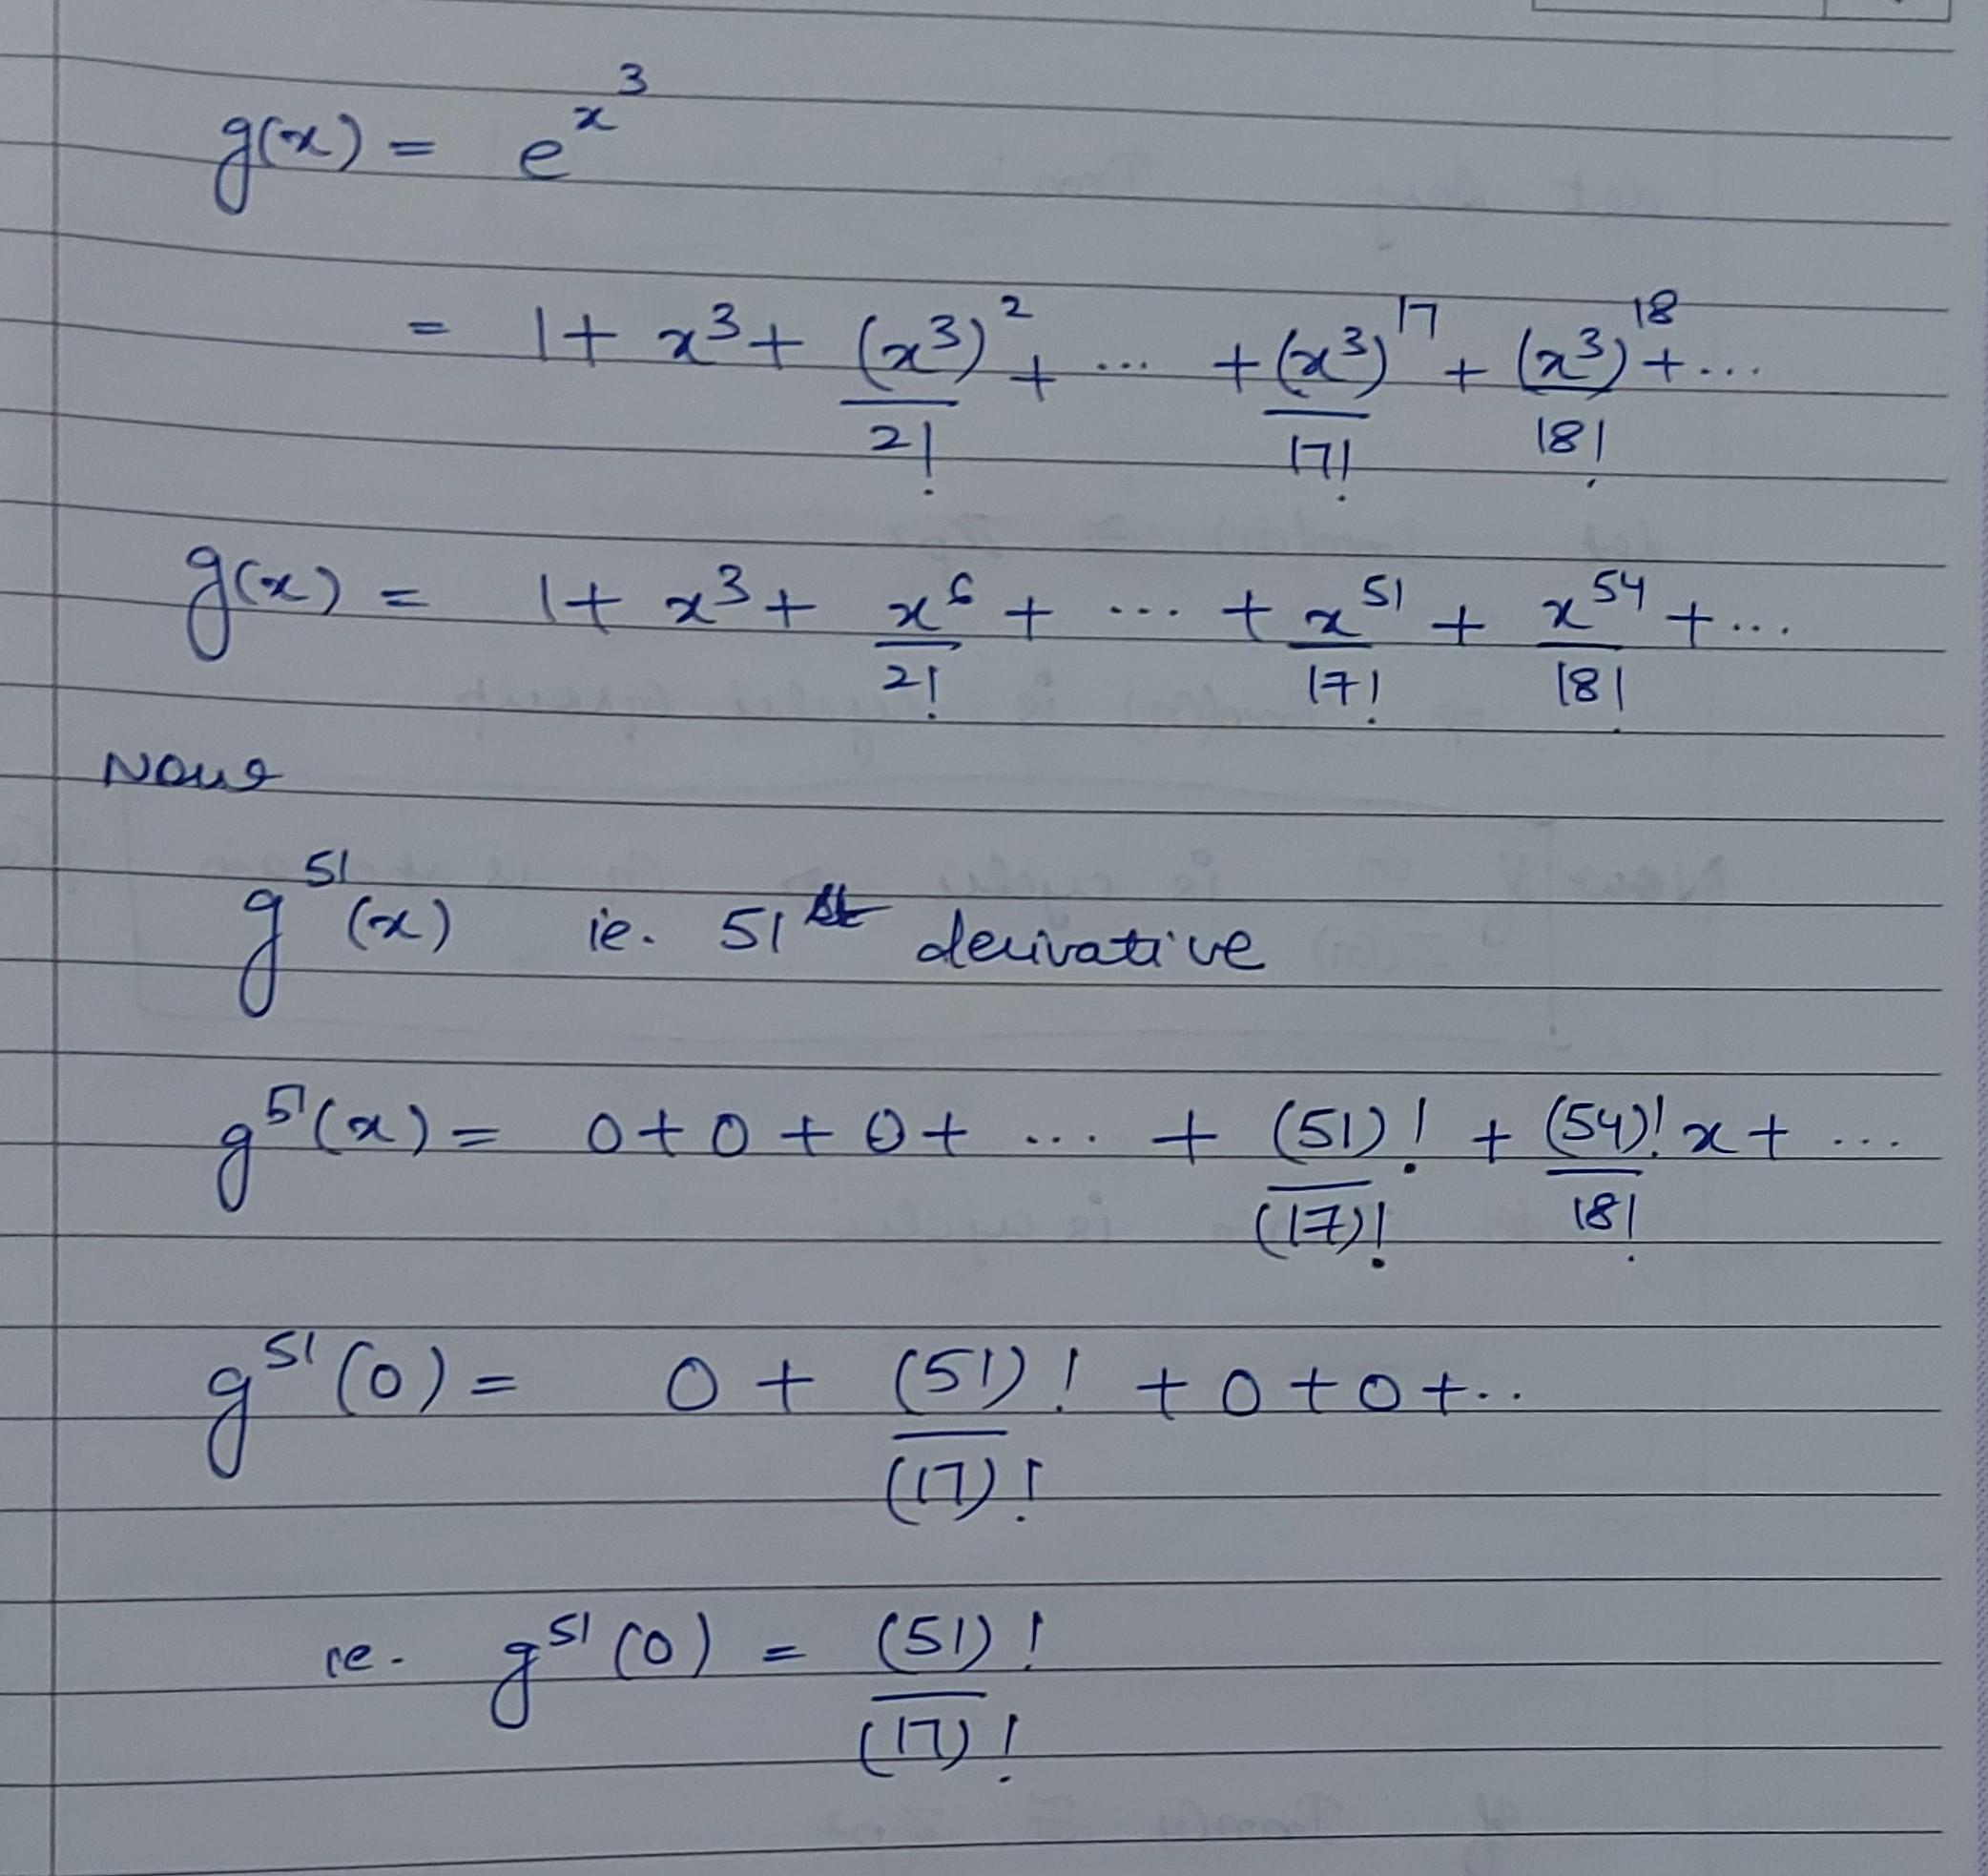 g(x) = e^x^3
= 1 + x^3 + (x^3)^2/2! + ... + (x^3)^17/17! + (x^3)^18/18! + ...
g(x) = 1 + x^3 + x^6/2! + ... + x^51/17! + x^54/18! + ...
Now
g^51(x) ie. 51st derivative
g^51(x) = 0 + 0 + 0 + ... + (51)!/(17)! + (54)!/18! x + ...
g^51(0) = 0 + (51)!/(17)! + 0 + 0 + ..
ie. g^51(0) = (51)!/(17)!